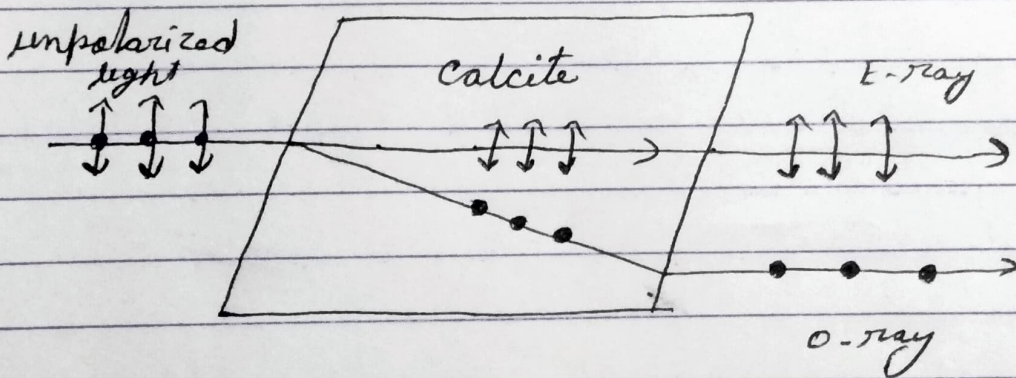 unpolarized
light
Calcite
E-ray
O-ray